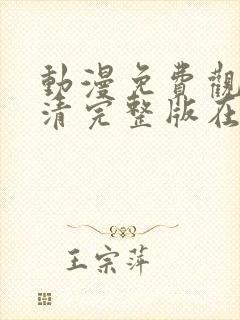 動漫免費觀
清完整版在
王宗萍